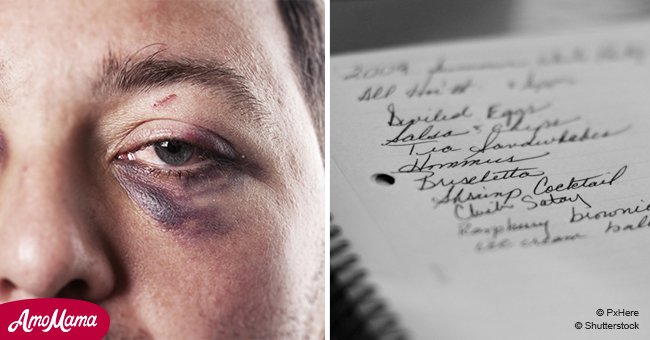 2009
All
Deviled Eggs
Salsa & Chips
Tea Sandwhiches
Hommus
Shrimp Cocktail
Satay
Raspberry brownie
ice cream ball
AmoMama
© PxHere
© Shutterstock